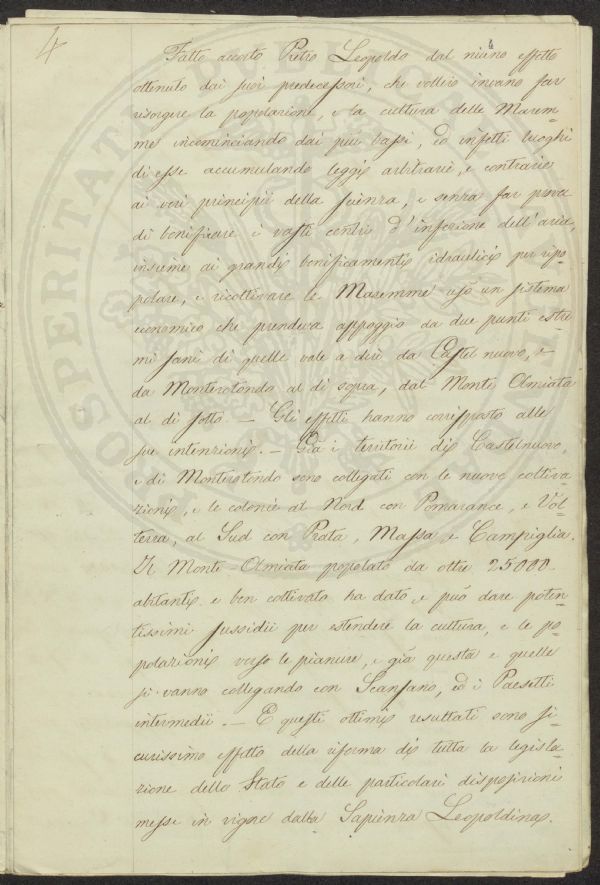 4
Fatto accorto Pietro Leopoldo dal niuno effetto
ottenuto dai suoi predecessori, che vollero invano far
risorgere la popolazione, e la cultura delle Marem-
me incominciando dai più bassi, ed infetti luoghi
di esse accumulando leggi arbitrarie, e contrarie
ai veri principii della scienza, e senza far prova
di bonificare i vasti centri d'infezione dell'aria,
insieme ai grandi bonificamenti idraulici per ripo-
polare, e ricoltivare le Maremme usò un sistema
economico che prendeva appoggio da due punti estre-
mi sani di quelle vale a dire da Castel nuovo, e
da Monterotondo al di sopra, dal Monte Amiata
al di sotto. — Gli effetti hanno corrisposto alle
sue intenzioni. — Già i territorii di Castelnuovo,
e di Monterotondo sono collegati con le nuove coltiva
zioni, e le colonie al Nord con Pomarance, e Vol-
terra, al Sud con Prata, Massa e Campiglia.
Il Monte-Amiata popolato da oltre 25000.
abitanti e ben coltivato ha dato, e può dare poten-
tissimi sussidii per estendere la cultura, e le po-
polazioni verso le pianure, e già questa e quelle
si vanno collegando con Scansano, ed i Paesetti
intermedii. — E questi ottimi resultati sono si-
curissimo effetto della riforma di tutta la legisla-
zione dello Stato e delle particolari disposizioni
messe in vigore dalla Sapienza Leopoldina.
PROSPERITATI PUBLICAE